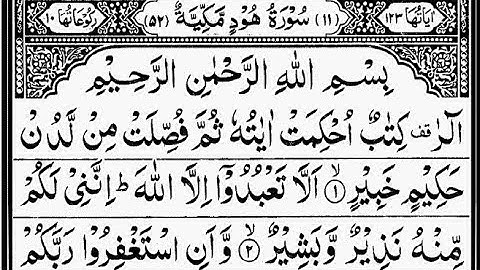 اٰيَاتُهَا ۱۲۳ (۱۱) سُوْرَةُ هُوْدٍ مَكِّيَّةٌ (۵۲) رُكُوْعَاتُهَا ۱۰
بِسْمِ اللّٰهِ الرَّحْمٰنِ الرَّحِيْمِ
الٓرٰ قف كِتٰبٌ اُحْكِمَتْ اٰيٰتُهٗ ثُمَّ فُصِّلَتْ مِنْ لَّدُنْ
حَكِيْمٍ خَبِيْرٍ ۙ‏﴿۱﴾ اَلَّا تَعْبُدُوْۤا اِلَّا اللّٰهَ ؕ اِنَّنِيْ لَكُمْ
مِّنْهُ نَذِيْرٌ وَّبَشِيْرٌ ۙ‏﴿۲﴾ وَّاَنِ اسْتَغْفِرُوْا رَبَّكُمْ